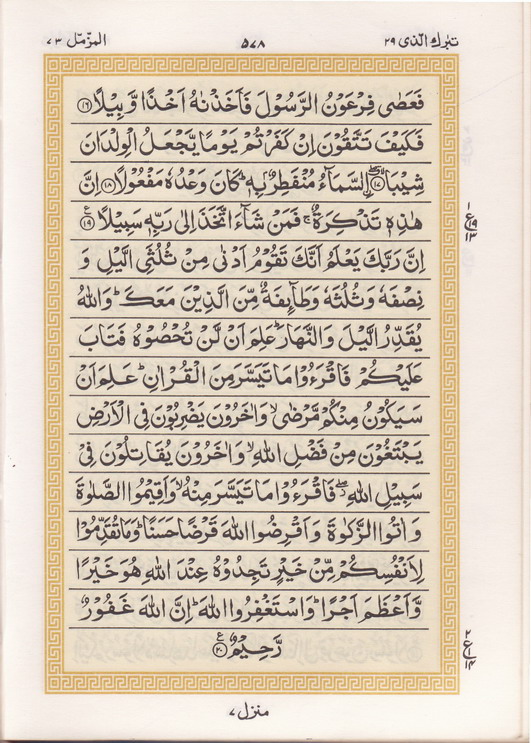 تبٰرك الّذى ٢٩
٥٧٨
المزّمّل ٧٣
فَعَصٰى فِرْعَوْنُ الرَّسُوْلَ فَاَخَذْنٰهُ اَخْذًا وَّبِيْلًا ﴿١٦﴾
فَكَيْفَ تَتَّقُوْنَ اِنْ كَفَرْتُمْ يَوْمًا يَّجْعَلُ الْوِلْدَانَ
شِيْبًا ﴿١٧﴾ السَّمَآءُ مُنْفَطِرٌۢ بِهٖ ؕ كَانَ وَعْدُهٗ مَفْعُوْلًا ﴿١٨﴾ اِنَّ
هٰذِهٖ تَذْكِرَةٌ ۚ فَمَنْ شَآءَ اتَّخَذَ اِلٰى رَبِّهٖ سَبِيْلًا ﴿١٩﴾ ع
اِنَّ رَبَّكَ يَعْلَمُ اَنَّكَ تَقُوْمُ اَدْنٰى مِنْ ثُلُثَىِ الَّيْلِ وَ
نِصْفَهٗ وَثُلُثَهٗ وَطَآئِفَةٌ مِّنَ الَّذِيْنَ مَعَكَ ؕ وَاللّٰهُ
يُقَدِّرُ الَّيْلَ وَالنَّهَارَ ؕ عَلِمَ اَنْ لَّنْ تُحْصُوْهُ فَتَابَ
عَلَيْكُمْ فَاقْرَءُوْا مَا تَيَسَّرَ مِنَ الْقُرْاٰنِ ؕ عَلِمَ اَنْ
سَيَكُوْنُ مِنْكُمْ مَّرْضٰى ۙ وَاٰخَرُوْنَ يَضْرِبُوْنَ فِى الْاَرْضِ
يَبْتَغُوْنَ مِنْ فَضْلِ اللّٰهِ ۙ وَاٰخَرُوْنَ يُقَاتِلُوْنَ فِىْ
سَبِيْلِ اللّٰهِ ۖ فَاقْرَءُوْا مَا تَيَسَّرَ مِنْهُ ۙ وَاَقِيْمُوا الصَّلٰوةَ
وَاٰتُوا الزَّكٰوةَ وَاَقْرِضُوا اللّٰهَ قَرْضًا حَسَنًا ؕ وَمَا تُقَدِّمُوْا
لِاَنْفُسِكُمْ مِّنْ خَيْرٍ تَجِدُوْهُ عِنْدَ اللّٰهِ هُوَ خَيْرًا
وَّاَعْظَمَ اَجْرًا ؕ وَاسْتَغْفِرُوا اللّٰهَ ؕ اِنَّ اللّٰهَ غَفُوْرٌ
رَّحِيْمٌ ﴿٢٠﴾ ع
١
ع ١٩
١٣
٢
ع ١
١٤
منزل ٧